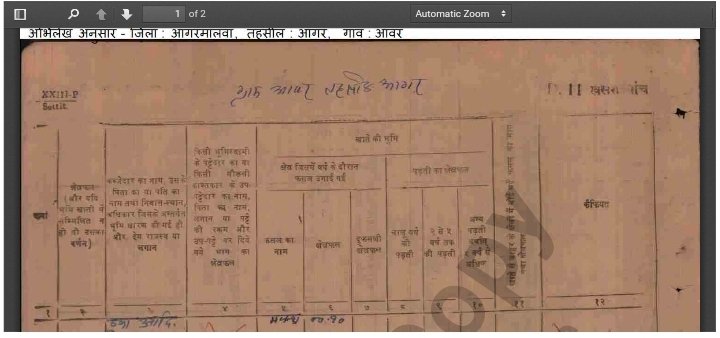 1 of 2 Automatic Zoom
अभिलेख अनुसार - जिला : आगरमालवा, तहसील : आगर, गांव : आवर
XXIII-P
Settlt.
ग्राम आवर तहसील आगर
P. II खसरा पांच
खाते की भूमि
क्षेत्र जिसमें वर्ष के दौरान
फसल उगाई गई
पड़ती का क्षेत्रफल
कब्जेदार का नाम, उसके
पिता का या पति का
नाम तथा निवास-स्थान,
अधिकार जिसके अन्तर्गत
भूमि धारण की गई हो
और, देय राजस्व या
लगान
किसी भूमिस्वामी
के पट्टेदार का या
किसी मौरूसी
काश्तकार के उप-
पट्टेदार का नाम,
पिता का नाम,
लगान या पट्टे
की रकम और
उप-पट्टे पर दिये
गये भाग का
क्षेत्रफल
क्षेत्रफल
(और यदि
भूमि खातों में
सम्मिलित न
हो तो उसका
वर्णन)
फसल का
नाम
क्षेत्रफल
दुफसली
क्षेत्रफल
चालू वर्ष
की
पड़ती
२ से ५
वर्ष तक
की पड़ती
अन्य
पड़ती
अर्थात्
५ वर्ष से
अधिक
कैफियत
१ २ ३ ४ ५ ६ ७ ८ ९ १० ११ १२
copy